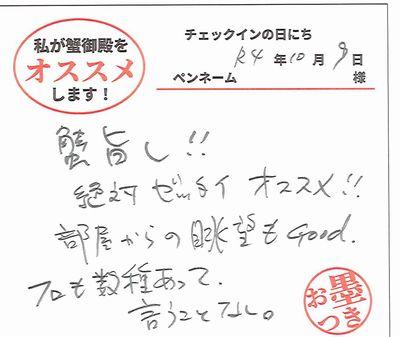 私が蟹御殿を
オススメ
します！
チェックインの日にち
R4 年 10 月 9 日
ペンネーム 様
蟹旨し!!
絶対ゼッタイオススメ!!
部屋からの眺望もGood.
フロも数種あって、
言うことなし。
お墨つき